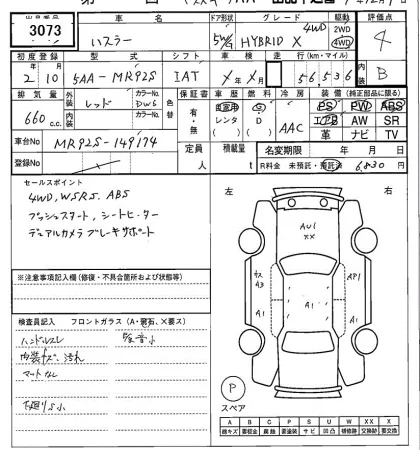 出品番号
3073
車名
ハスラー
ドア形状
5W/G
グレード
HYBRID X 4WD
駆動
2WD
4WD
評価点
4
初度登録
2年10月
型式
5AA-MR92S
シフト
IAT
車検
X年X月
走行(km・マイル)
56,536
内装
B
排気量
660 c.c.
外装
レッド
内装
カラーNo.
DW6
カラーNo.
色替
保証書
有・無
車歴
自家用
レンタ
( )
燃料
G
D
( )
冷房
AAC
装備(純正部品に限る)
PS PW ABS
エアB AW SR
革 ナビ TV
車台No
MR92S-149174
登録No
定員
人
積載量
t
名変期限
年 月 日
R料金 未預託・預託済 6,830 円
セールスポイント
4WD, W.S.R.S. ABS
プッシュスタート, シートヒーター
デュアルカメラブレーキサポート
左
右
AU1
XX
キズ
A3
AP1
A1
A1
A1
※注意事項記入欄(修復・不具合箇所および状態等)
検査員記入
フロントガラス(A・飛石、X要ス)
ハンドルスレ
内装キズ、汚れ
マットなし
下廻りS小
P
スペア
A B C P S U W XX X
線キズ 要板金 腐触 要塗装 サビ 凹凸 補修跡 交換跡 要交換